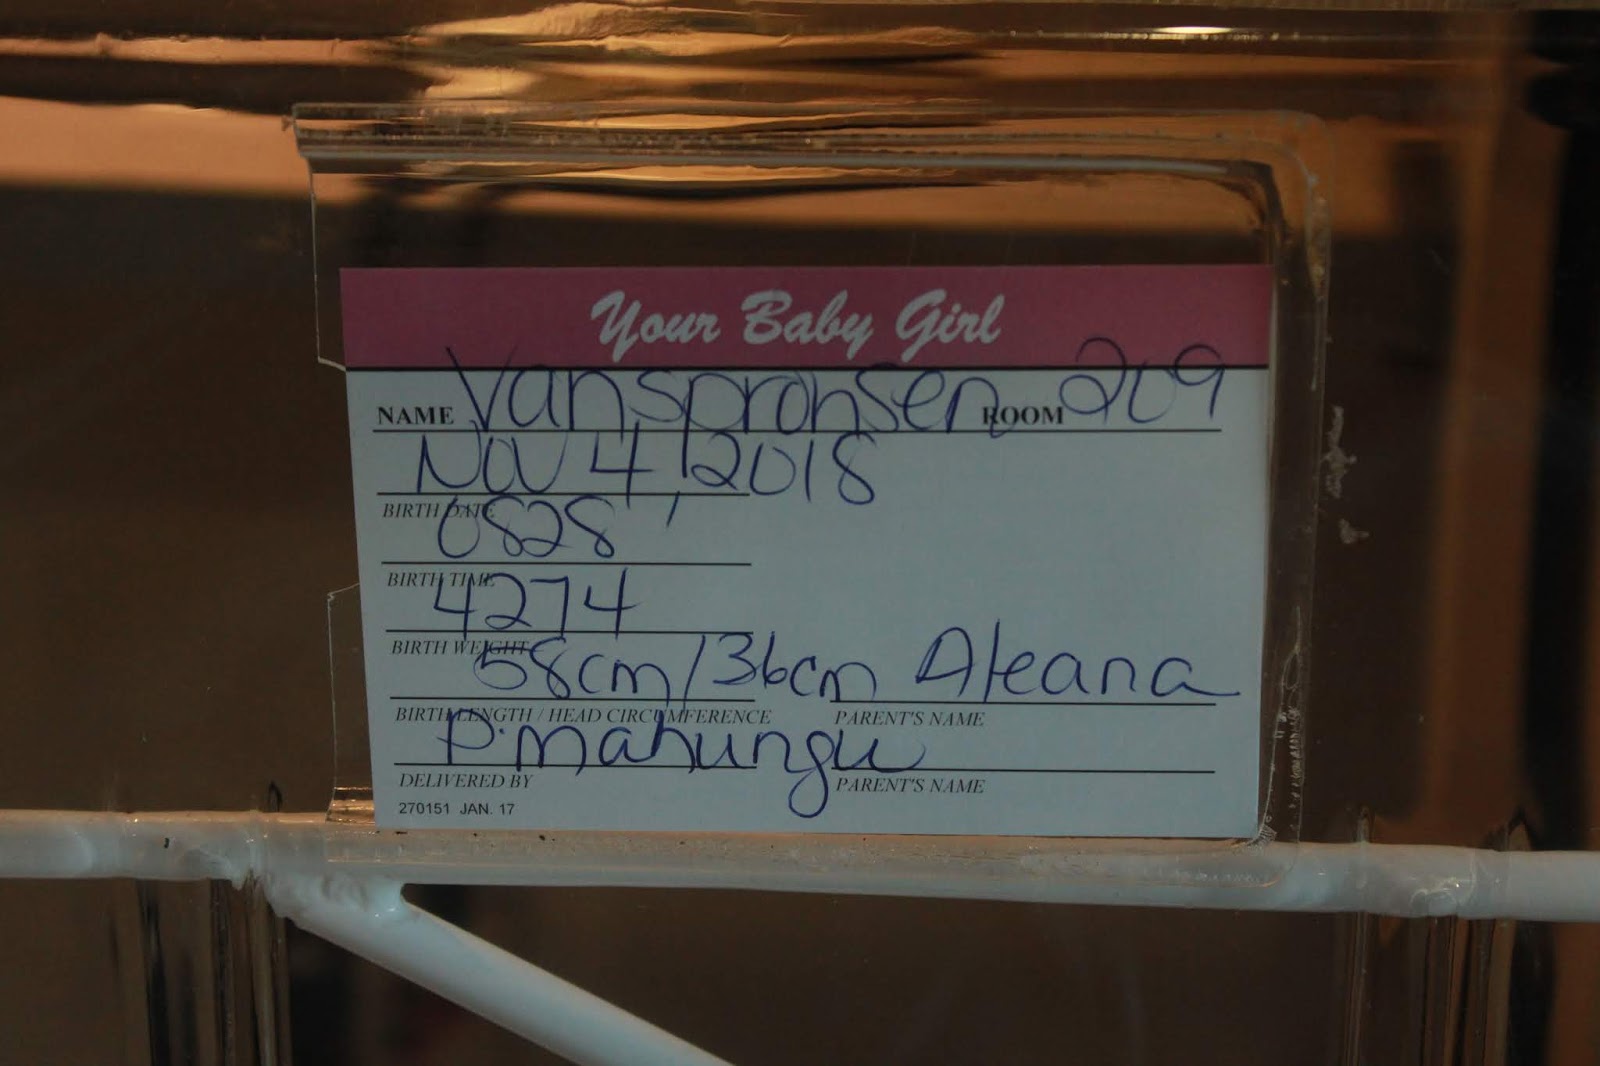 Your Baby Girl
NAME Vanspronsen ROOM 209
Nov 4, 2018
BIRTH DATE
0828
BIRTH TIME
4274
BIRTH WEIGHT
58cm/36cm Aleana
BIRTH LENGTH / HEAD CIRCUMFERENCE PARENT'S NAME
P. Mahungu
DELIVERED BY PARENT'S NAME
270151 JAN. 17